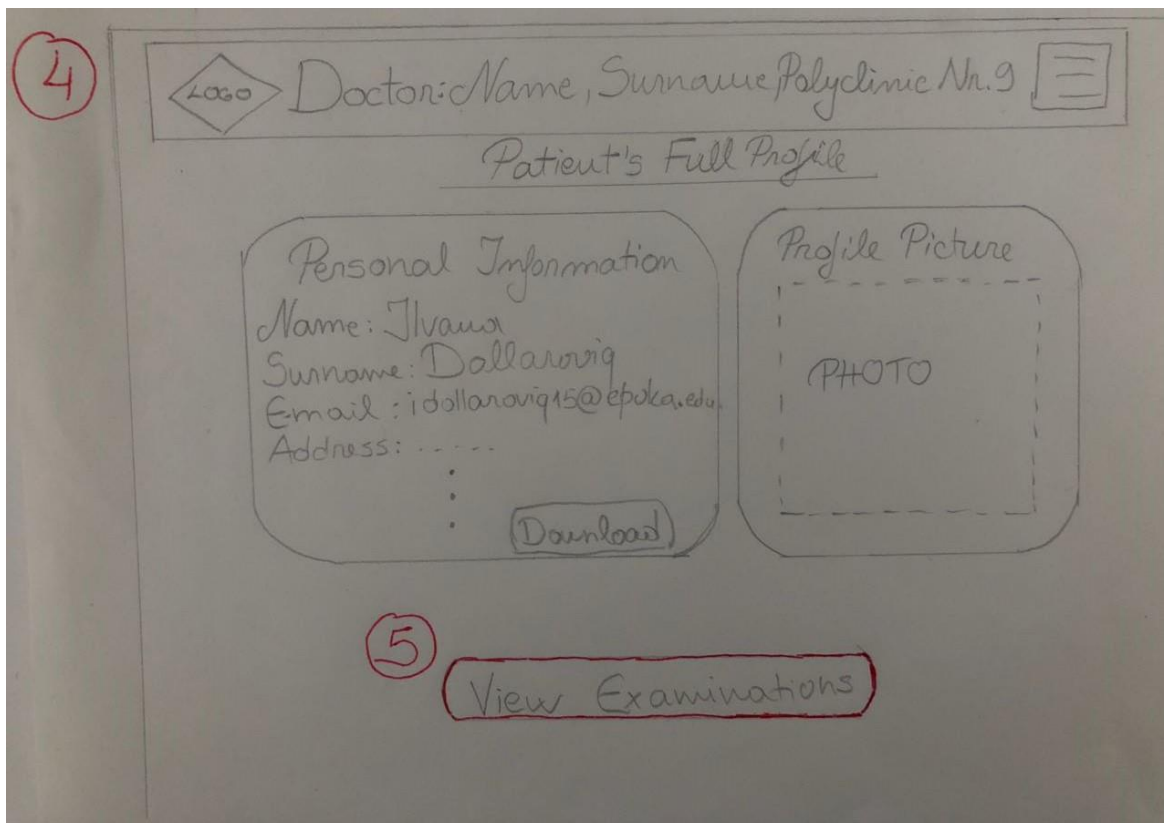 4
LOGO Doctor: Name, Surname, Polyclinic Nr. 9
Patient's Full Profile
Personal Information
Name: Ilvana
Surname: Dollaroviq
Email: idollaroviq15@epoka.edu.
Address: .....
Download
Profile Picture
PHOTO
5
View Examinations